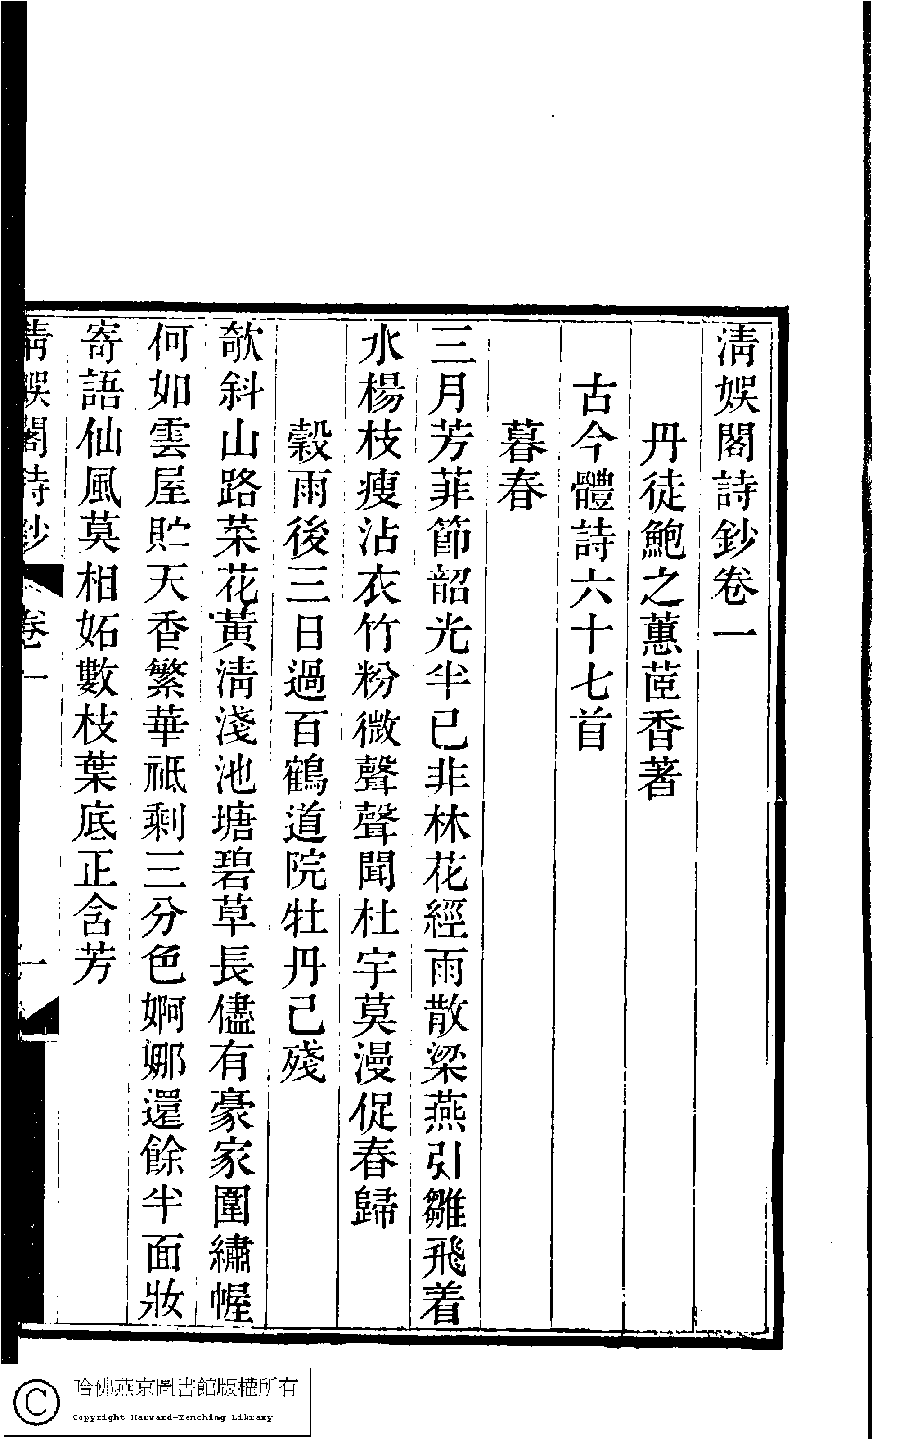 清娛閣詩鈔卷一
丹徒鮑之蕙茝香著
古今體詩六十七首
暮春
三月芳菲節韶光半已非林花經雨散梁燕引雛飛着
水楊枝瘦沾衣竹粉微聲聲聞杜宇莫漫促春歸
穀雨後三日過百鶴道院牡丹已殘
欹斜山路菜花黃清淺池塘碧草長儘有豪家圍繡幄
何如雲屋貯天香繁華祗剩三分色婀娜還餘半面妝
寄語仙風莫相妬數枝葉底正含芳
清娛閣詩鈔 卷一 一
哈佛燕京圖書館版權所有
Copyright Harvard-Yenching Library